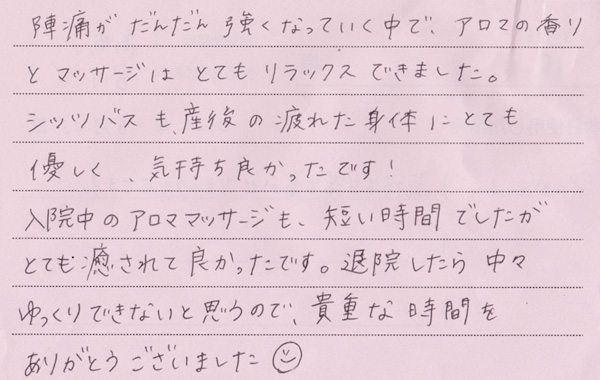 陣痛が だんだん 強くなっていく中で、アロマの香り
とマッサージは とても リラックス できました。
シッツバスも、産後の疲れた身体にとても
優しく、気持ち良かったです!
入院中のアロママッサージも、短い時間でしたが
とても癒されて良かったです。退院したら中々
ゆっくりできないと思うので、貴重な時間を
ありがとうございました